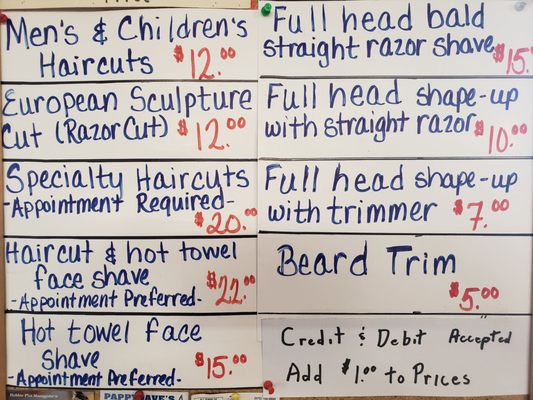 Men's & Children's
Haircuts $12.00
European Sculpture
Cut (Razor Cut) $12.00
Specialty Haircuts
-Appointment Required-
$20.00
Haircut & hot towel
face shave
-Appointment Preferred- $22.00
Hot towel face
shave
-Appointment Preferred- $15.00
PAPPY DAVE'S
Full head bald
straight razor shave $15.
Full head shape-up
with straight razor $10.00
Full head shape-up
with trimmer $7.00
Beard Trim
$5.00
Credit & Debit Accepted
Add $1.00 to Prices